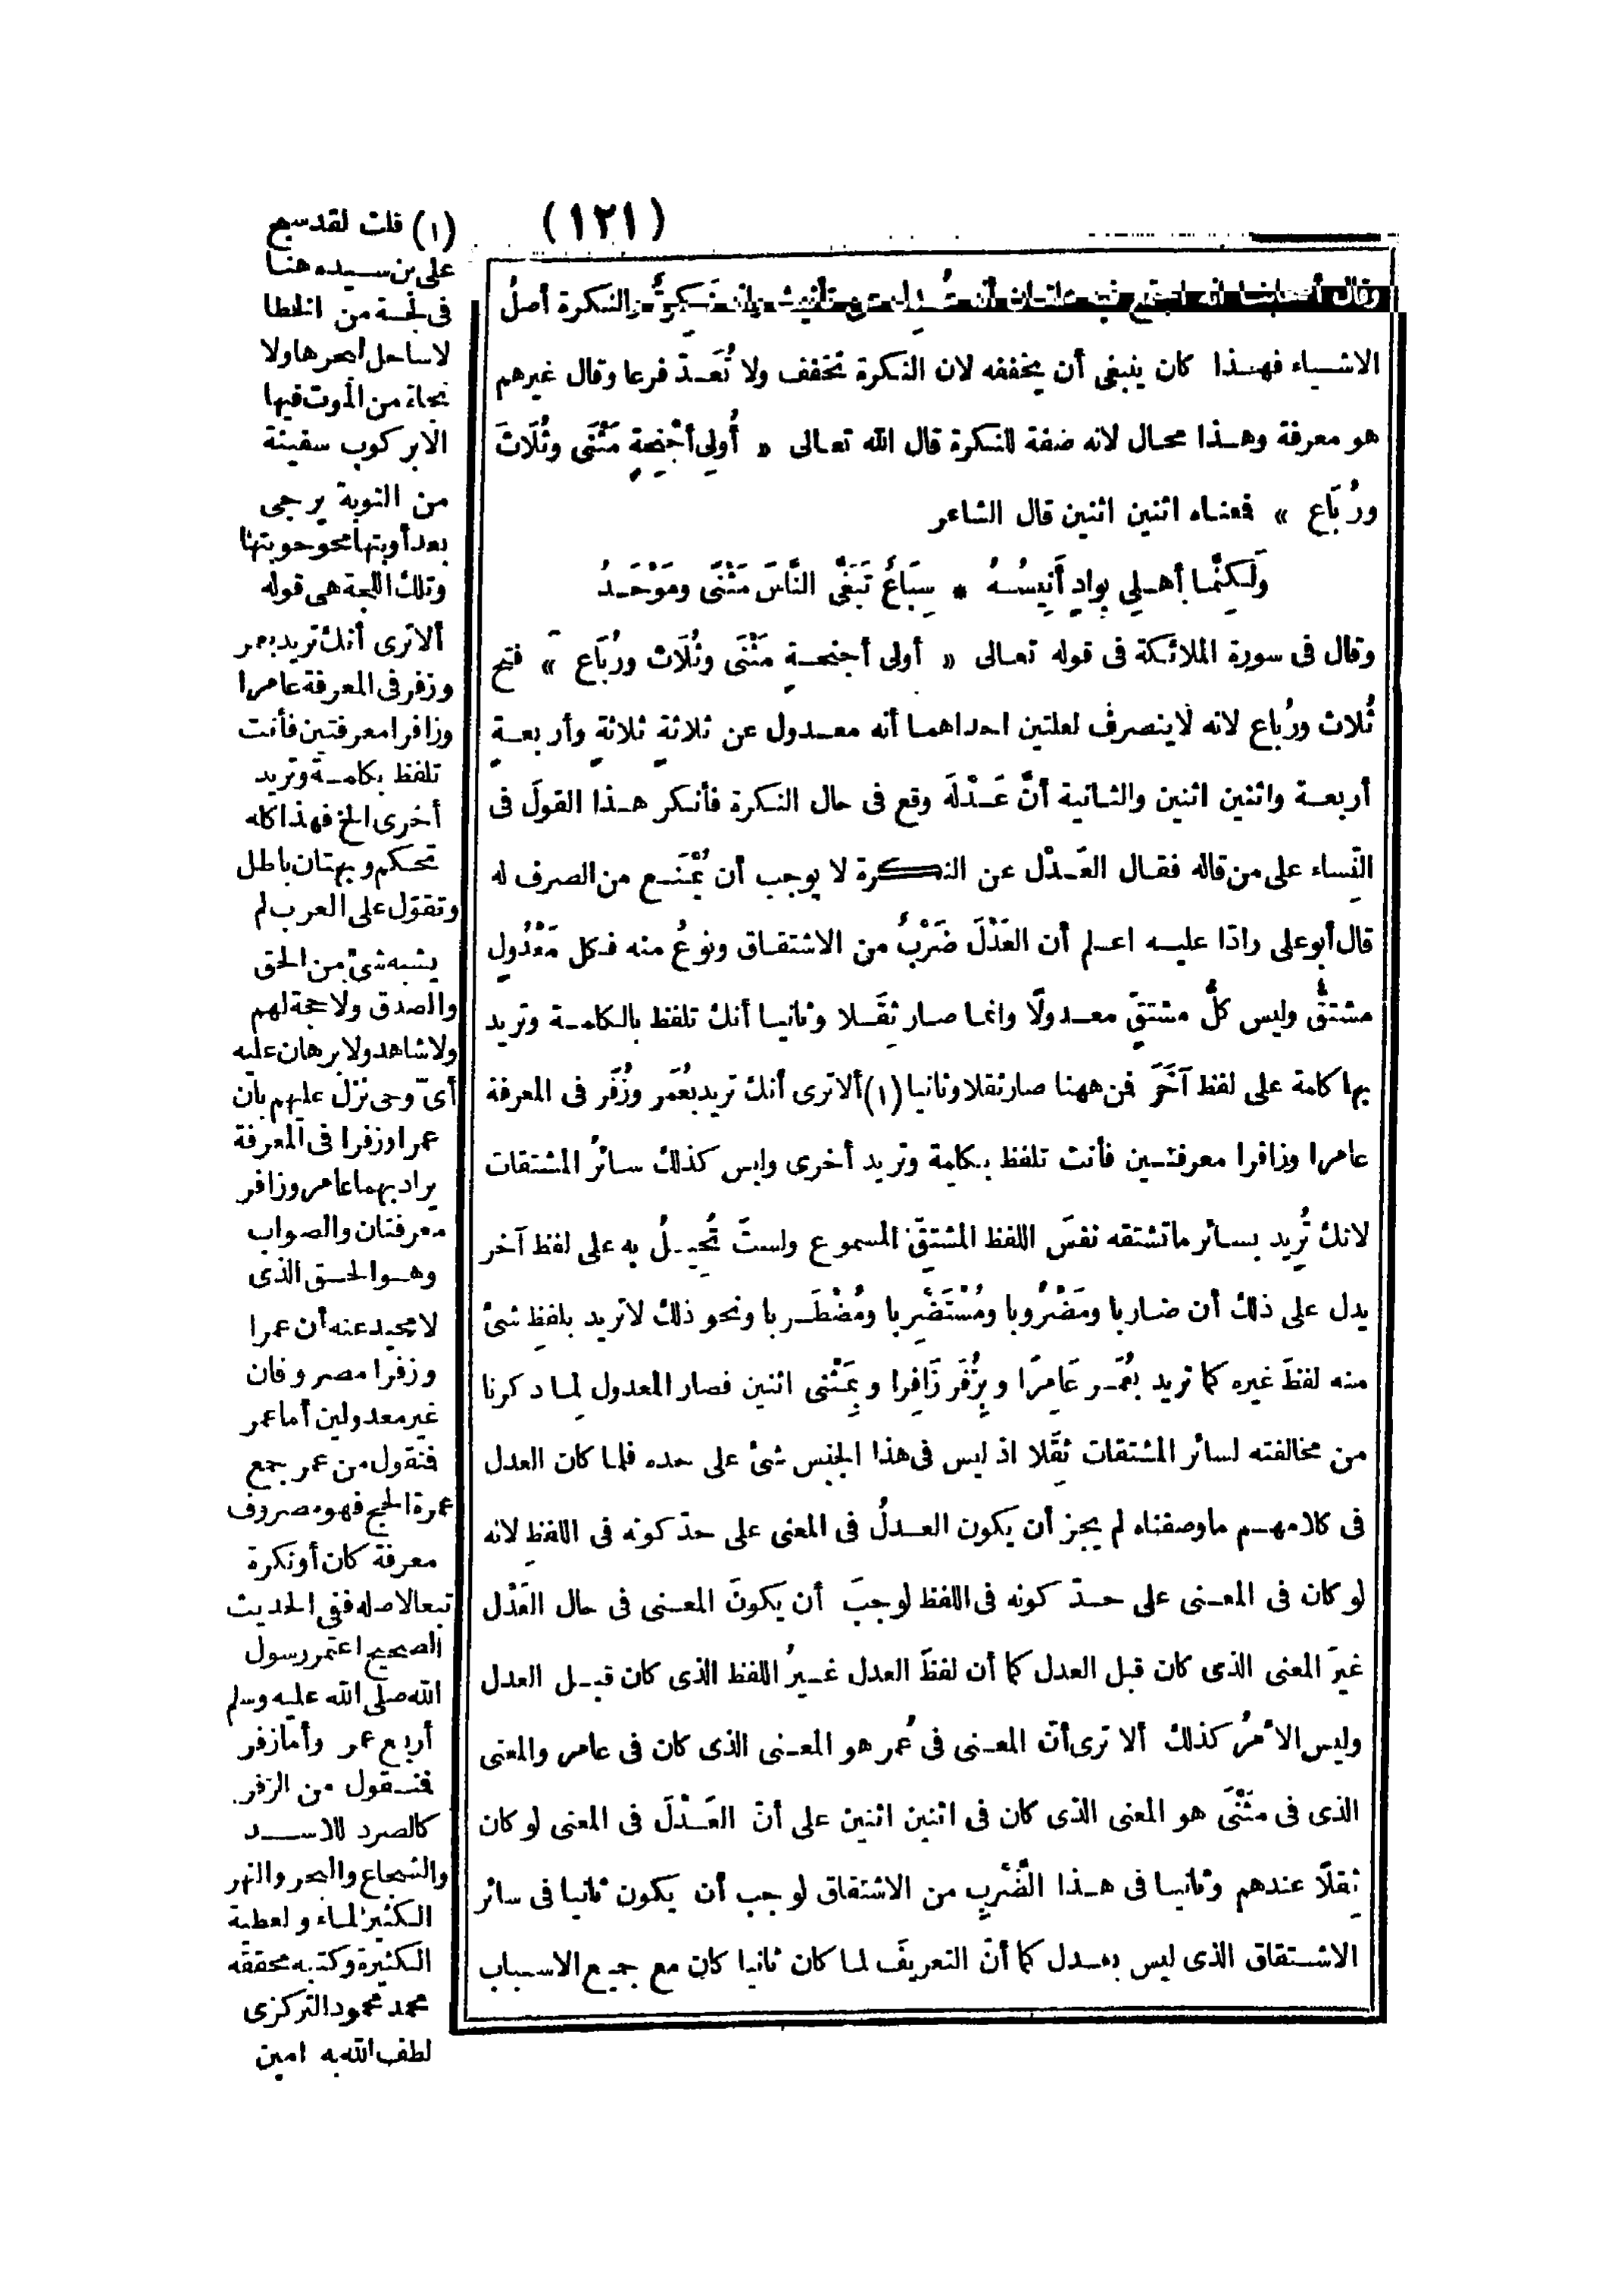 (١٢١)
وقال أصحابنا انه اجتمع فيه علتان أنه عُدِل عن تأنيث وانه نَكِرةٌ والنكرة أصلُ
الاشياء فهذا كان ينبغى أن يخففه لان النكرة تخفف ولا تُعَدّ فرعا وقال غيرهم
هو معرفة وهذا محال لانه صفة للنكرة قال الله تعالى « أُولِى أجْنِحةٍ مَثْنَى وثُلَاثَ
ورُبَاع » فمعناه اثنين اثنين قال الشاعر
ولَكِنَّما أهلِي بِوادٍ أَنِيسُهُ * سِبَاعٌ تَبَغَّى النَّاسَ مَثْنَى ومَوْحَدُ
وقال فى سورة الملائكة فى قوله تعالى « أولى أجنحةٍ مَثْنَى وثُلَاث ورُبَاع » فتح
ثُلاث ورُباع لانه لاينصرف لعلتين احداهما أنه معدول عن ثلاثةٍ ثلاثةٍ وأربعةٍ
أربعة واثنين اثنين والثانية أنَّ عَدْلَه وقع فى حال النكرة فأنكر هذا القولَ فى
النِّساء على من قاله فقال العَدْل عن النكرة لا يوجب أن يُمْنَع من الصرف له
قال أبوعلى رادّا عليه اعلم أن العَدْلَ ضَرْبٌ من الاشتقاق ونوعٌ منه فكل مَعْدُولٍ
مشتقٌّ وليس كلُّ مشتقٍّ معدولًا وانما صار ثِقَلا وثانيا أنك تلفظ بالكلمة وتريد
بها كلمة على لفظ آخَرَ فمن ههنا صار ثقلا وثانيا (١) ألاترى أنك تريد بعُمَر وزُفَر فى المعرفة
عامرا وزافرا معرفتين فأنت تلفظ بكلمة وتريد أخرى وليس كذلك سائرُ المشتقات
لانك تُرِيد بسائر ماتشتقه نفسَ اللفظ المشتقِّ المسموع ولستَ تُحِيلُ به على لفظ آخر
يدل على ذلك أن ضاربا ومَضْرُوبا ومُسْتَضْرِبا ومُضْطَربا ونحو ذلك لاتريد بلفظِ شئ
منه لفظَ غيره كما تريد بعُمَر عَامِرًا وبِزُفَر زَافِرا وبِمَثْنى اثنين فصار المعدول لِما ذكرنا
من مخالفته لسائر المشتقات ثِقَلا اذ ليس فى هذا الجنس شئ على حده فلما كان العدل
فى كلامهم ماوصفناه لم يجز أن يكون العدلُ فى المعنى على حدّ كونه فى اللفظِ لانه
لو كان فى المعنى على حدّ كونه فى اللفظ لوجبَ أن يكونَ المعنى فى حال العَدْل
غيرَ المعنى الذى كان قبل العدل كما أن لفظَ العدل غيرُ اللفظ الذى كان قبل العدل
وليس الأمرُ كذلك ألا ترى أنّ المعنى فى عُمر هو المعنى الذى كان فى عامر والمعنى
الذى فى مَثْنَى هو المعنى الذى كان فى اثنين اثنين على أنّ العَدْلَ فى المعنى لو كان
ثِقَلًا عندهم وثانيا فى هذا الضَّرْبِ من الاشتقاق لوجب أن يكون ثانيا فى سائر
الاشتقاق الذى ليس بعدل كما أنّ التعريفَ لما كان ثانيا كان مع جميع الاسباب
(١) قلت لقد سبح
على بن سيده هنا
فى لجة من الخطا
لاساحل لبحرها ولا
نجاة من الموت فيها
الابركوب سفينة
من التوبة يرجى
بعد أوبتها محو حوبتها
وتلك اللجة هى قوله
ألاترى أنك تريد بعمر
وزفر فى المعرفة عامرا
وزافرا معرفتين فأنت
تلفظ بكلمة وتريد
أخرى الخ فهذا كله
تحكم وبهتان باطل
وتقوّل على العرب لم
يشبه شئ من الحق
والصدق ولاحجة لهم
ولاشاهد ولابرهان عليه
أىّ وحى نزل عليهم بأن
عمرا وزفرا فى المعرفة
يراد بهما عامر وزافر
معرفتان والصواب
وهو الحق الذى
لامحيد عنه أن عمرا
وزفرا مصروفان
غير معدولين أما عمر
فنقول من عمر جمع
عمرة الحج فهو مصروف
معرفة كان أونكرة
تبعالاصله ففى الحديث
الصحيح اعتمر رسول
الله صلى الله عليه وسلم
أربع عمر وأمّا زفر
فنقول من الزفر
كالصرد للاسد
والشجاع والبحر والنهر
الكثير الماء ولعطية
الكثيرة وكتبه محققه
محمد محمود التركزى
لطف الله به امين